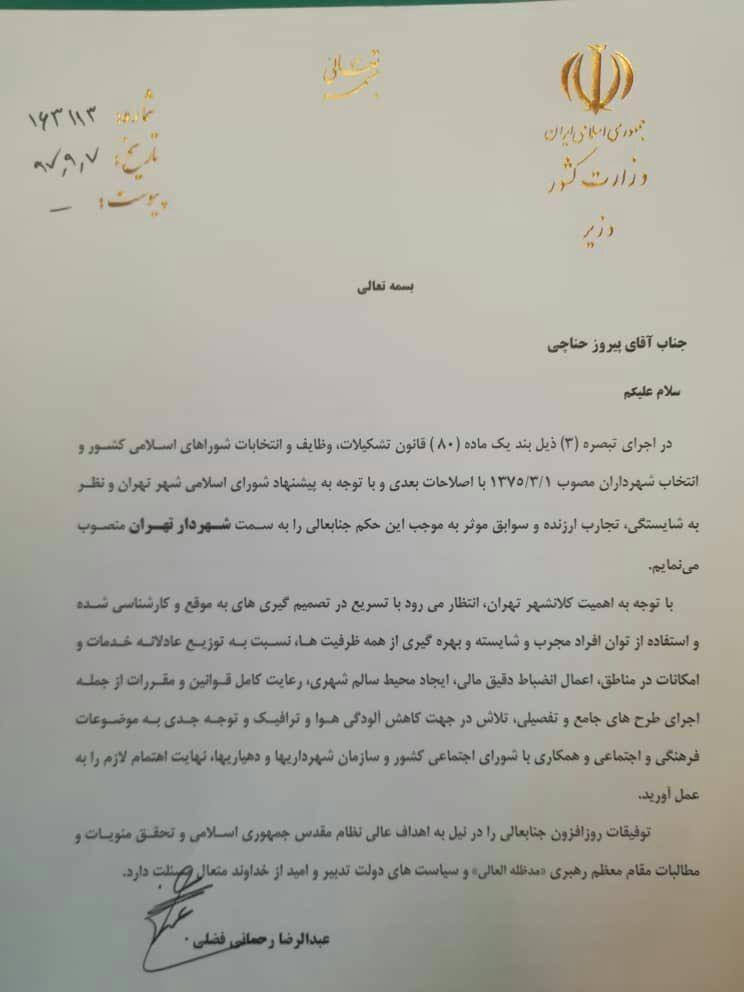 جمهوری اسلامی ایران
وزارت کشور
وزیر
بسمه تعالی
شماره: ۱۶۳۱۱۳
تاریخ: ۹۷,۹,۷
پیوست: —
بسمه تعالی
جناب آقای پیروز حناچی
سلام علیکم
در اجرای تبصره (۳) ذیل بند یک ماده (۸۰) قانون تشکیلات، وظایف و انتخابات شوراهای اسلامی کشور و
انتخاب شهرداران مصوب ۱۳۷۵/۳/۱ با اصلاحات بعدی و با توجه به پیشنهاد شورای اسلامی شهر تهران و نظر
به شایستگی، تجارب ارزنده و سوابق موثر به موجب این حکم جنابعالی را به سمت شهردار تهران منصوب
می‌نمایم.
با توجه به اهمیت کلانشهر تهران، انتظار می رود با تسریع در تصمیم گیری های به موقع و کارشناسی شده
و استفاده از توان افراد مجرب و شایسته و بهره گیری از همه ظرفیت ها، نسبت به توزیع عادلانه خدمات و
امکانات در مناطق، اعمال انضباط دقیق مالی، ایجاد محیط سالم شهری، رعایت کامل قوانین و مقررات از جمله
اجرای طرح های جامع و تفصیلی، تلاش در جهت کاهش آلودگی هوا و ترافیک و توجه جدی به موضوعات
فرهنگی و اجتماعی و همکاری با شورای اجتماعی کشور و سازمان شهرداریها و دهیاریها، نهایت اهتمام لازم را به
عمل آورید.
توفیقات روزافزون جنابعالی را در نیل به اهداف عالی نظام مقدس جمهوری اسلامی و تحقق منویات و
مطالبات مقام معظم رهبری «مدظله العالی» و سیاست های دولت تدبیر و امید از خداوند متعال مسئلت دارد.
عبدالرضا رحمانی فضلی